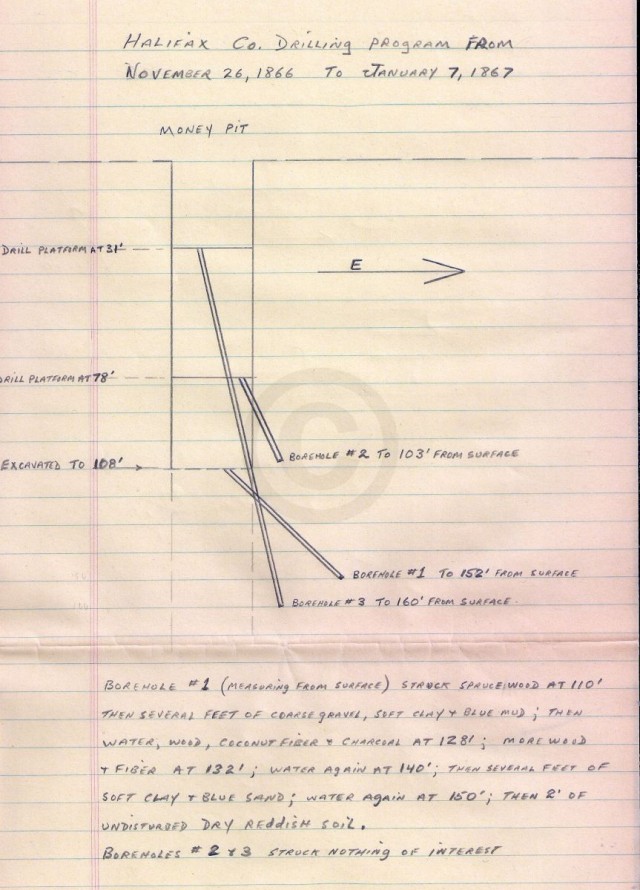 HALIFAX CO. DRILLING PROGRAM FROM
NOVEMBER 26, 1866 TO JANUARY 7, 1867
MONEY PIT
DRILL PLATFORM AT 31'
E
DRILL PLATFORM AT 78'
BOREHOLE #2 TO 103' FROM SURFACE
EXCAVATED TO 108'
BOREHOLE #1 TO 152' FROM SURFACE
BOREHOLE #3 TO 160' FROM SURFACE.
BOREHOLE #1 (MEASURING FROM SURFACE) STRUCK SPRUCEWOOD AT 110'
THEN SEVERAL FEET OF COARSE GRAVEL, SOFT CLAY & BLUE MUD; THEN
WATER, WOOD, COCONUT FIBER & CHARCOAL AT 128'; MORE WOOD
& FIBER AT 132'; WATER AGAIN AT 140'; THEN SEVERAL FEET OF
SOFT CLAY & BLUE SAND; WATER AGAIN AT 150'; THEN 2' OF
UNDISTURBED DRY REDDISH SOIL.
BOREHOLES #2 & 3 STRUCK NOTHING OF INTEREST